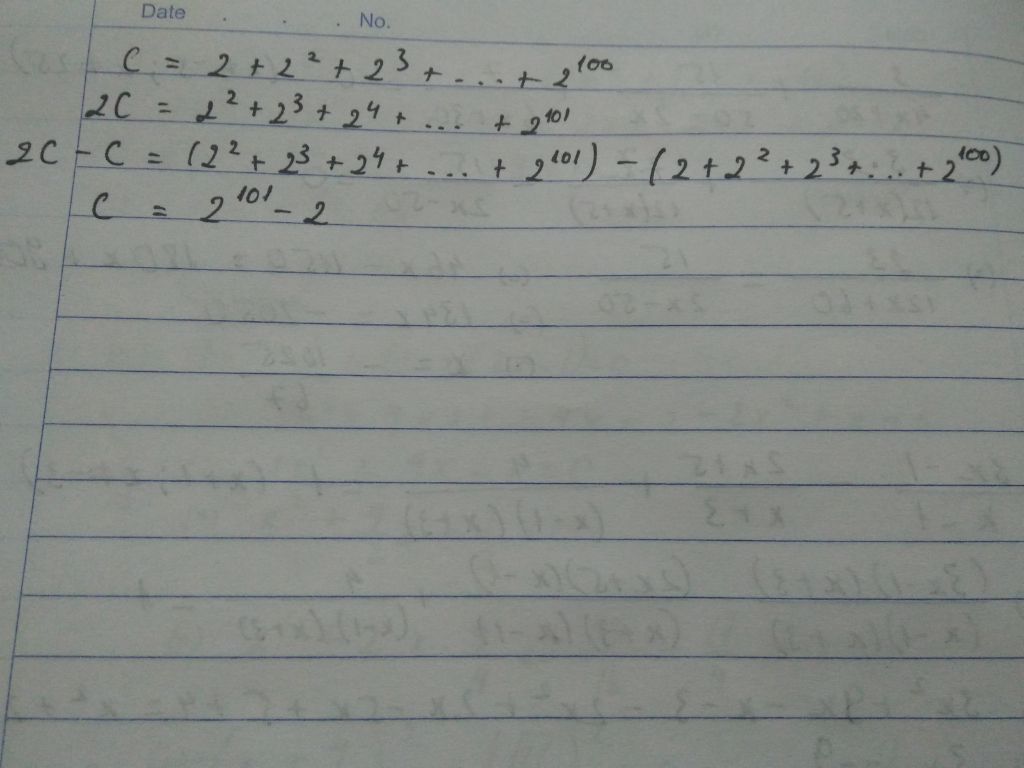 Date . . . No.
C = 2 + 2² + 2³ + ... + 2¹⁰⁰
2C = 2² + 2³ + 2⁴ + ... + 2¹⁰¹
2C - C = (2² + 2³ + 2⁴ + ... + 2¹⁰¹) - (2 + 2² + 2³ + ... + 2¹⁰⁰)
C = 2¹⁰¹ - 2